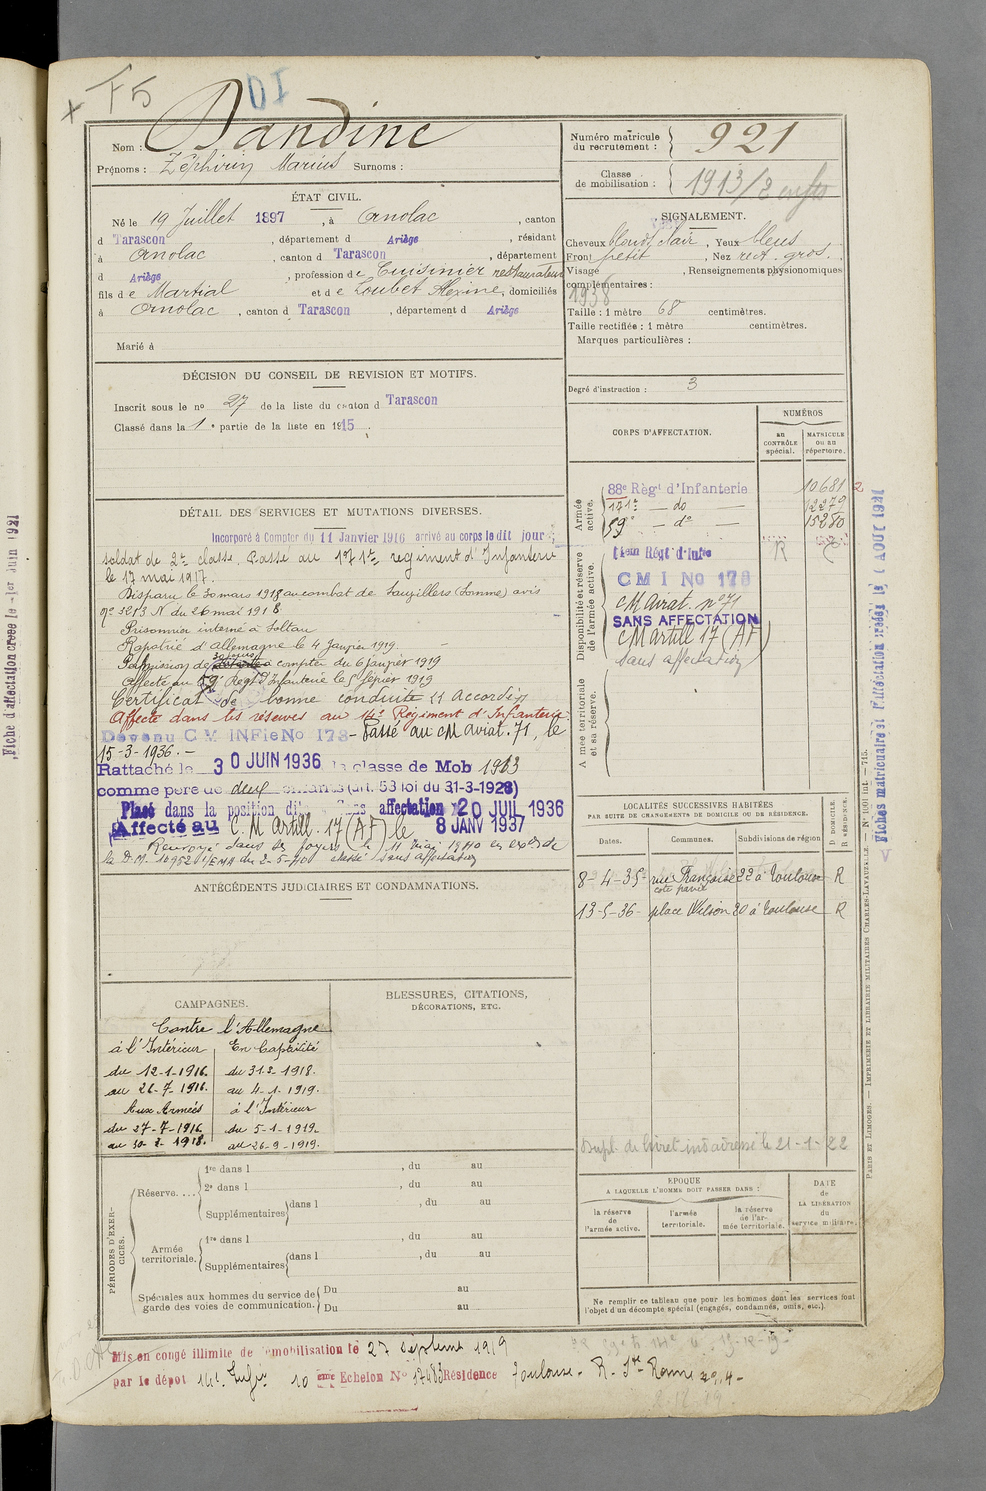 F5
DI
Nom : Dandine
Prénoms : Zéphirin Marius Surnoms :
Numéro matricule du recrutement : 921
Classe de mobilisation : 1913/2 enfts
ÉTAT CIVIL.
Né le 19 Juillet 1897, à Ornolac, canton
d Tarascon, département d Ariège, résidant
à Ornolac, canton d Tarascon, département
d Ariège, profession de Cuisinier restaurateur
fils de Martial et de Loubet Alexine, domiciliés
à Ornolac, canton d Tarascon, département d Ariège
Marié à
SIGNALEMENT.
Cheveux blond clair, Yeux bleus
Front petit, Nez rect. gros.
Visage , Renseignements physionomiques
complémentaires :
1938
Taille : 1 mètre 68 centimètres.
Taille rectifiée : 1 mètre centimètres.
Marques particulières :
Degré d'instruction : 3
DÉCISION DU CONSEIL DE REVISION ET MOTIFS.
Inscrit sous le no 27 de la liste du canton d Tarascon
Classé dans la 1e partie de la liste en 1915.
DÉTAIL DES SERVICES ET MUTATIONS DIVERSES.
Incorporé à Compter du 11 Janvier 1916 arrivé au corps le dit jour
soldat de 2e classe. Passé au 141e régiment d'Infanterie
le 17 mai 1917.
Disparu le 30 mars 1918 au combat de (Somme) avis
no 3213 N du 26 mai 1918
Prisonnier interné à Soltau
Rapatrié d'Allemagne le 4 Janvier 1919.
Permission de 30 jours à compter du 6 janvier 1919
Affecté au 59e Régt d'Infanterie le 5 février 1919
Certificat de bonne conduite "accordé"
Affecté dans les réserves au 14e Régiment d'Infanterie
Devenu CM INFie No 178 - Passé au CM Aviat. 71, le
15-3-1936. -
Rattaché le 30 JUIN 1936 la classe de Mob 1913
comme père de deux enfants (art. 53 loi du 31-3-1928)
Placé dans la position dite Sans affectation 20 JUIL 1936
Affecté au C.M Artill. 17 (AF) le 8 JANV 1937
Renvoyé dans ses foyers le 11 mai 1940 en exon de
la D.M. 10952 1/EMA du 2-5-40 classé sans affectation
CORPS D'AFFECTATION.
NUMÉROS
au CONTRÔLE spécial.
MATRICULE ou au répertoire.
Armée active.
88e Régt d'Infanterie 10681
141e - do - 12279
59e - do - 15280
Disponibilité et réserve de l'armée active.
14em Régt d'Infie R
CMI No 178
CM Aviat. no 71
SANS AFFECTATION
CM Artill 17 (AF)
Sans affectation
Armée territoriale et sa réserve.
LOCALITÉS SUCCESSIVES HABITÉES
PAR SUITE DE CHANGEMENTS DE DOMICILE OU DE RÉSIDENCE.
Dates. Communes. Subdivisions de région
D DOMICILE. R RÉSIDENCE.
8-4-35 rue Française 22 à Toulouse R
côte pavée
13-5-36 - place Wilson 20 à Toulouse R
Dupl. du livret ind adressé le 21-1-22
ANTÉCÉDENTS JUDICIAIRES ET CONDAMNATIONS.
CAMPAGNES.
Contre l'Allemagne
à l'Intérieur
du 12-1-1916.
au 26-7-1916.
Aux Armées
du 27-7-1916
au 30-3-1918.
En Captivité
du 31.3-1918.
au 4-1-1919.
à l'Intérieur
du 5-1-1919.
au 26-9-1919.
BLESSURES, CITATIONS,
DÉCORATIONS, ETC.
PÉRIODES D'EXERCICES.
Réserve....
1re dans l , du au
2e dans l , du au
Supplémentaires dans l , du au
Armée territoriale.
1re dans l , du au
Supplémentaires dans l , du au
Spéciales aux hommes du service de garde des voies de communication.
Du au
Du au
EPOQUE
A LAQUELLE L'HOMME DOIT PASSER DANS :
la réserve de l'armée active.
l'armée territoriale.
la réserve de l'armée territoriale.
DATE de LA LIBÉRATION du service militaire.
Ne remplir ce tableau que pour les hommes dont les services font
l'objet d'un décompte spécial (engagés, condamnés, omis, etc.).
Mis en congé illimité de démobilisation le 27 Septembre 1919
par le dépôt 14e Infie 10 ème Echelon No 17483 Résidence Toulouse - R. Ste Rome no 4 -
PARIS ET LIMOGES. — IMPRIMERIE ET LIBRAIRIE MILITAIRES CHARLES-LAVAUZELLE.
Fiches matriculaire et d'affectation créées le 1 AOUT 1921
Fiche d'affectation créée le 1er Juin 1921